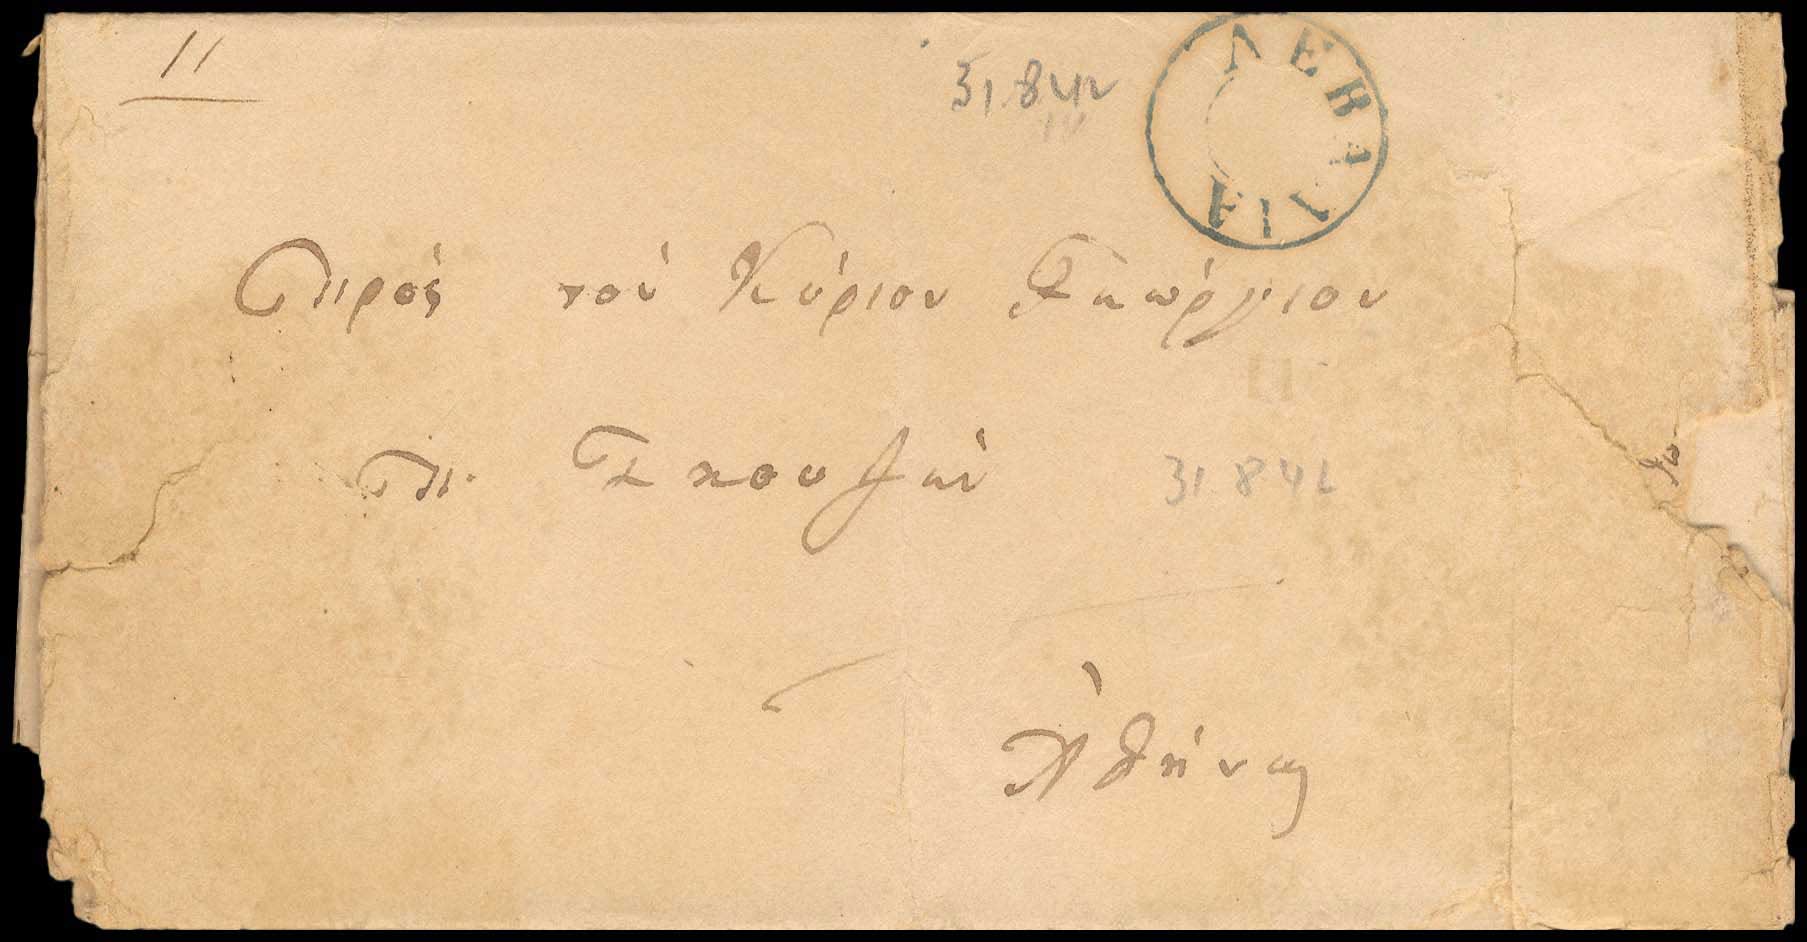 11
31.842
ΛΕΒΑΔΙΑ
Πρός τόν Κύριον Γεώργιον
Π. Σκουζέν
31842
Ἀθήνας